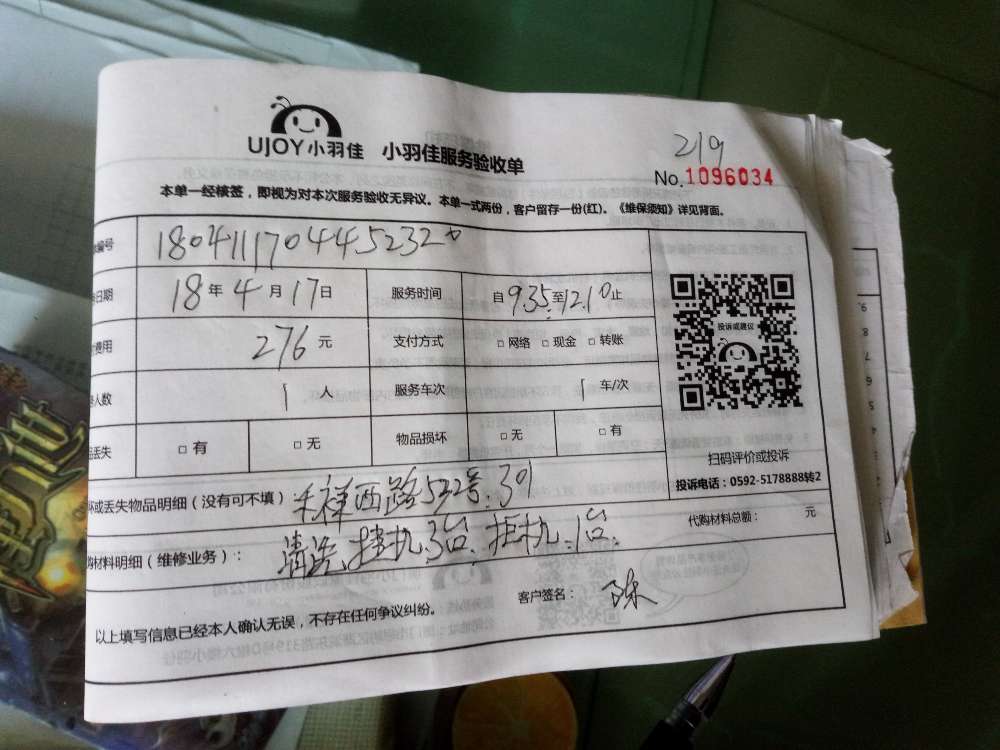 219
UJOY小羽佳 小羽佳服务验收单
No.1096034
本单一经核签，即视为对本次服务验收无异议。本单一式两份，客户留存一份(红)。《维保须知》详见背面。
编号 180411170445232
日期 18 年 4 月 17 日 服务时间 自 9.35 至 12.10 止
费用 276 元 支付方式 □ 网络 □ 现金 □ 转账
人数 1 人 服务车次 1 车/次
丢失 □ 有 □ 无 物品损坏 □ 无 □ 有
投诉或建议
扫码评价或投诉
投诉电话：0592-5178888转2
坏或丢失物品明细（没有可不填） 祥西路532号.301
购材料明细（维修业务）： 清洗.挂机.3台.柜机.1台.
代购材料总额： 元
以上填写信息已经本人确认无误，不存在任何争议纠纷。 客户签名： 陈